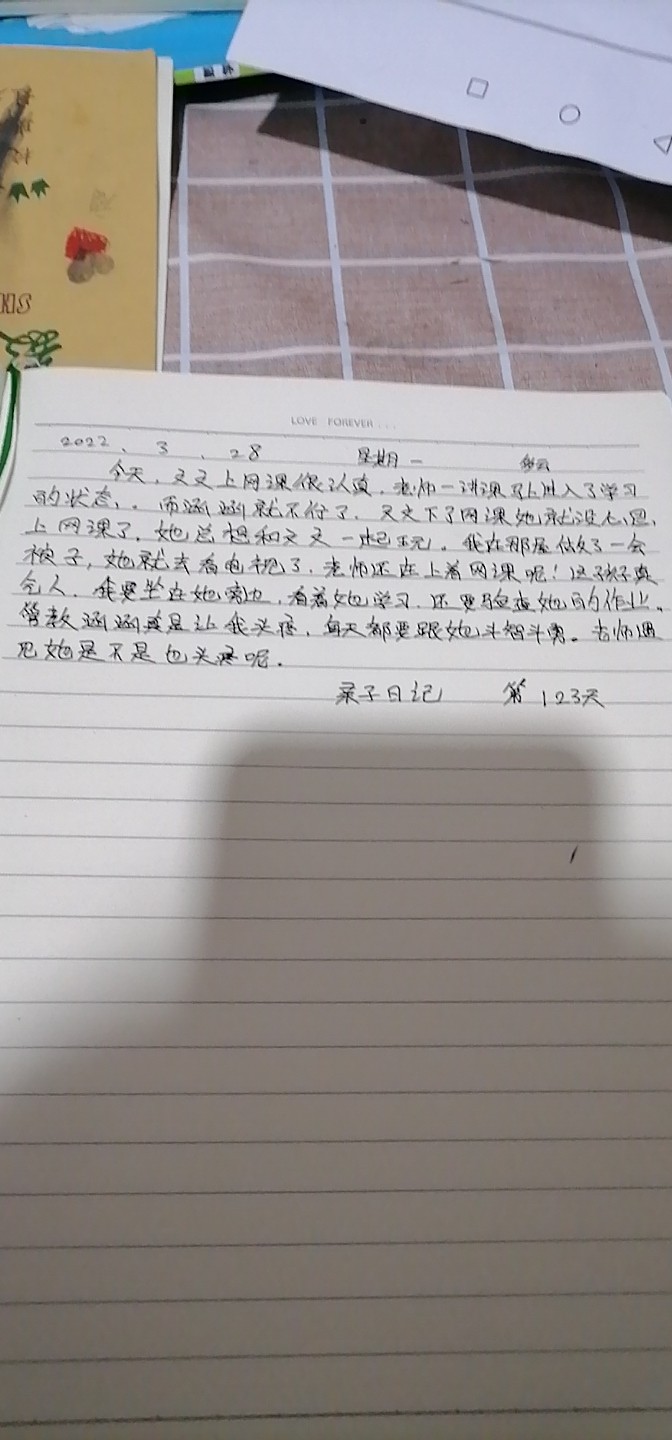 LOVE FOREVER...
2022、3、28 星期一 多云
今天,文文上网课很认真,老师一讲课马上进入了学习
的状态,。而涵涵就不行了,文文下了网课她就没心思,
上网课了,她总想和文文一起玩。我在那屋做了一会
被子,她就去看电视了,老师还在上着网课呢!这孩子真
气人,我要坐在她旁边,看着她学习,还要检查她的作业。
管教涵涵真是让我头疼,每天都要跟她斗智斗勇。老师遇
见她是不是也头疼呢.
亲子日记 第123天